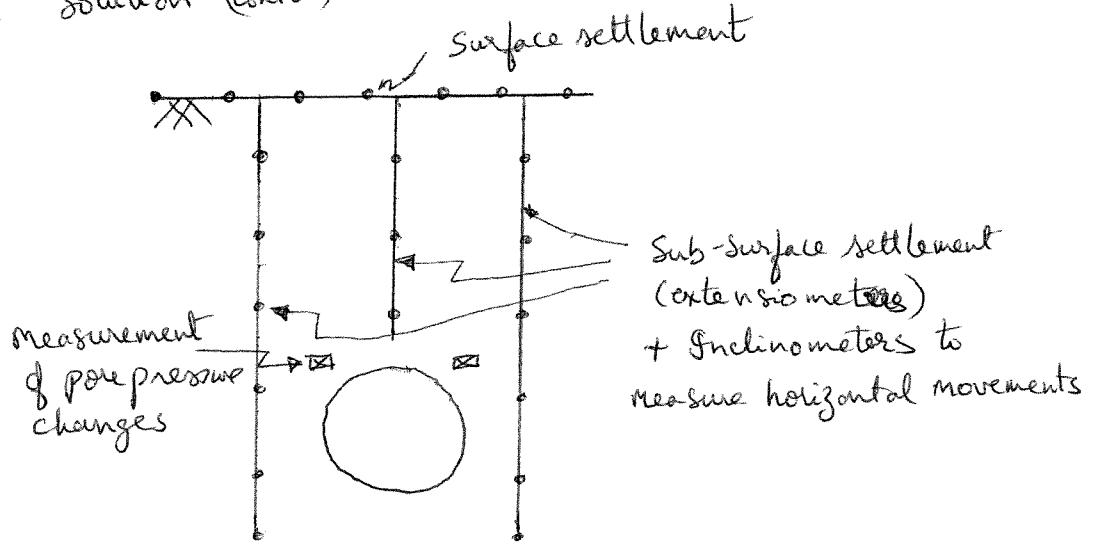 Solution (cont.)
Surface settlement
Sub-surface settlement
(extensiometers)
+ Inclinometers to
measure horizontal movements
measurement
of pore pressure
changes